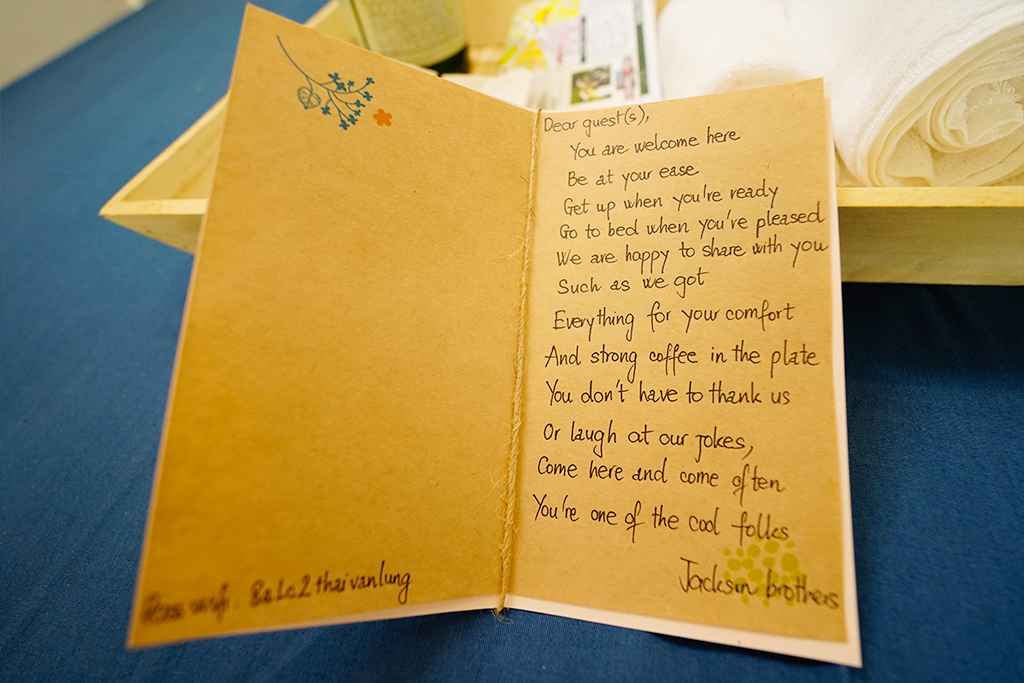 Dear guest(s),
You are welcome here
Be at your ease
Get up when you're ready
Go to bed when you're pleased
We are happy to share with you
Such as we got
Everything for your comfort
And strong coffee in the plate
You don't have to thank us
Or laugh at our jokes,
Come here and come often
You're one of the cool folks
Jackson brothers
thaivanlung